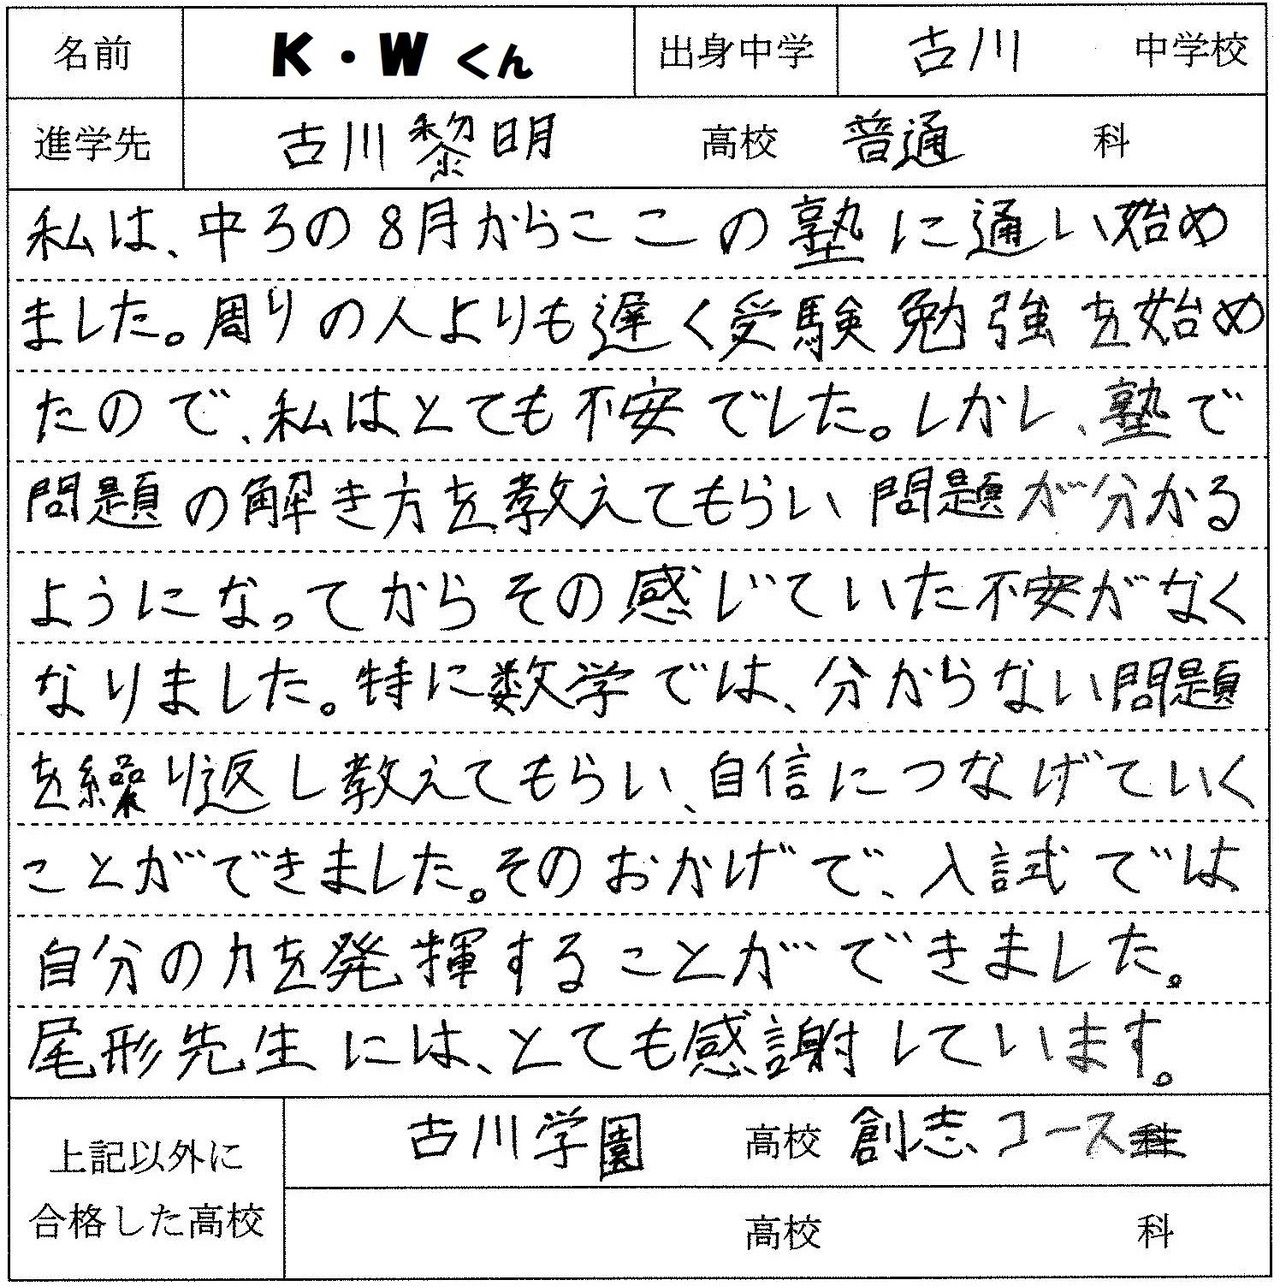 名前 K・Wくん 出身中学 古川 中学校
進学先 古川黎明 高校 普通 科
私は、中3の8月からここの塾に通い始め
ました。周りの人よりも遅く受験勉強を始め
たので、私はとても不安でした。しかし、塾で
問題の解き方を教えてもらい問題が分かる
ようになってからその感じていた不安がなく
なりました。特に数学では、分からない問題
を繰り返し教えてもらい、自信につなげていく
ことができました。そのおかげで、入試では
自分の力を発揮することができました。
尾形先生には、とても感謝しています。
上記以外に
合格した高校
古川学園 高校 創志コース科
高校 科